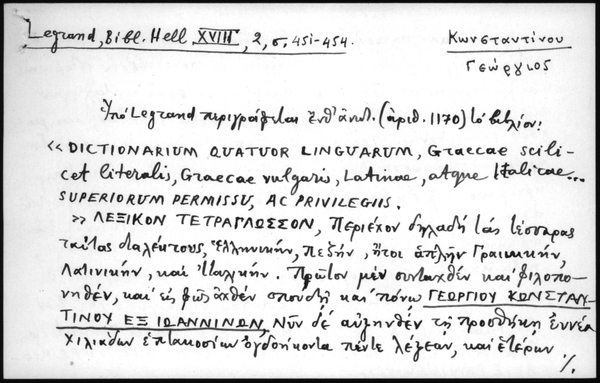 Legrand, Bibl. Hell. XVIII, 2, σ. 451-454.
Κωνσταντίνου
Γεώργιος
Ὑπό Legrand περιγράφεται ἐνθ' ἀνωτ. (ἀριθ. 1170) τό βιβλίον:
« DICTIONARIUM QUATUOR LINGUARUM, Graecae scili-
cet literalis, Graecae vulgaris, Latinae, atque Italicae...
SUPERIORUM PERMISSU, AC PRIVILEGIIS.
» ΛΕΞΙΚΟΝ ΤΕΤΡΑΓΛΩΣΣΟΝ, Περιέχον δηλαδή τάς τέσσαρας
ταύτας διαλέκτους, Ἑλληνικήν, πεζήν, ἤτοι ἁπλῆν Γραικικήν,
Λατινικήν, καί Ἰταλικήν. Πρῶτον μέν συνταχθέν καί φιλοπο-
νηθέν, καί εἰς φῶς ἀχθέν σπουδῇ καί πόνῳ ΓΕΩΡΓΙΟΥ ΚΩΝΣΤΑΝ-
ΤΙΝΟΥ ΕΞ ΙΩΑΝΝΙΝΩΝ, Νῦν δέ αὐξηνθέν τῇ προσθήκῃ ἐννέα
χιλιάδων ἑπτακοσίων ὀγδοήκοντα πέντε λέξεων, καί ἑτέρων
./.